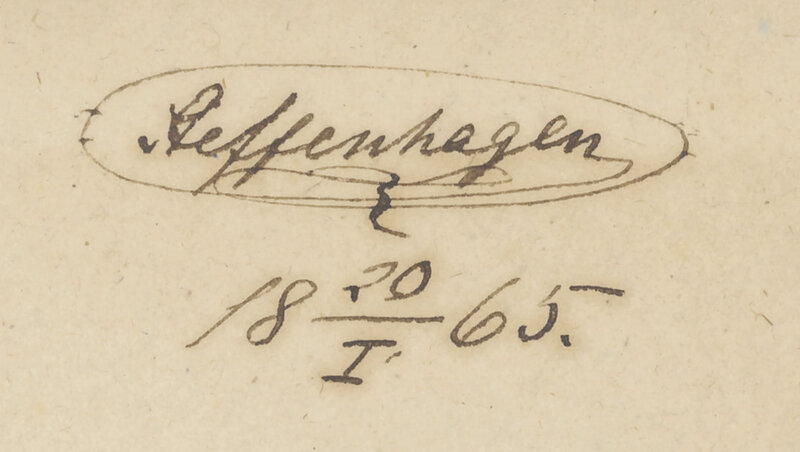 Steffenhagen
18 20/I 65.